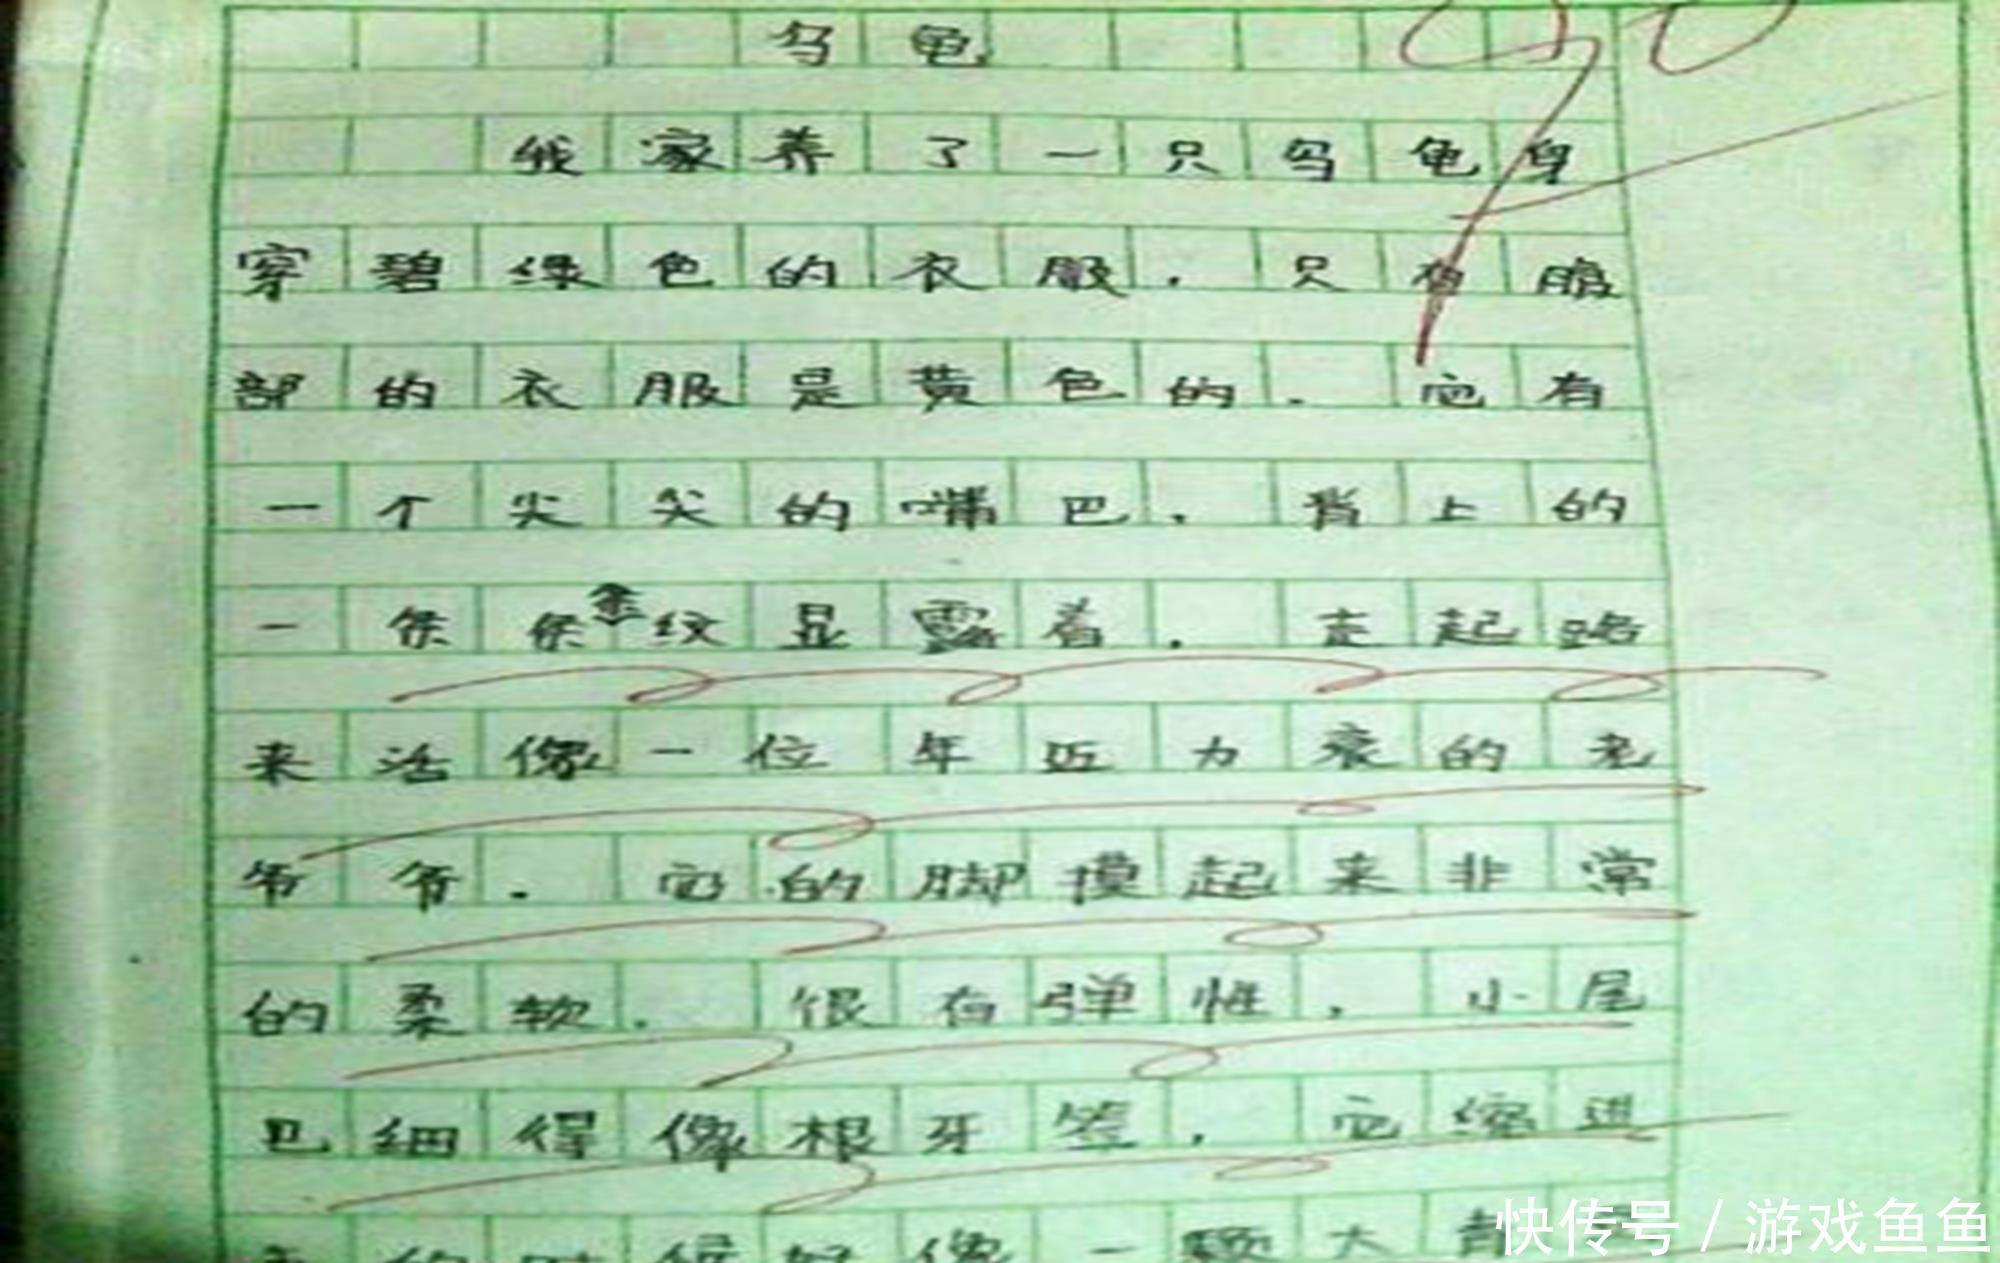 乌龟
我家养了一只乌龟身
穿碧绿色的衣服.只有腹
部的衣服是黄色的.它有
一个尖尖的嘴巴.背上的
一条条条纹显露着.走起路
来活像一位年迈力衰的老
爷爷.它的脚摸起来非常
的柔软.很有弹性.小尾
巴细得像根牙签.它缩进
的时候好像一颗大青
快传号/游戏鱼鱼